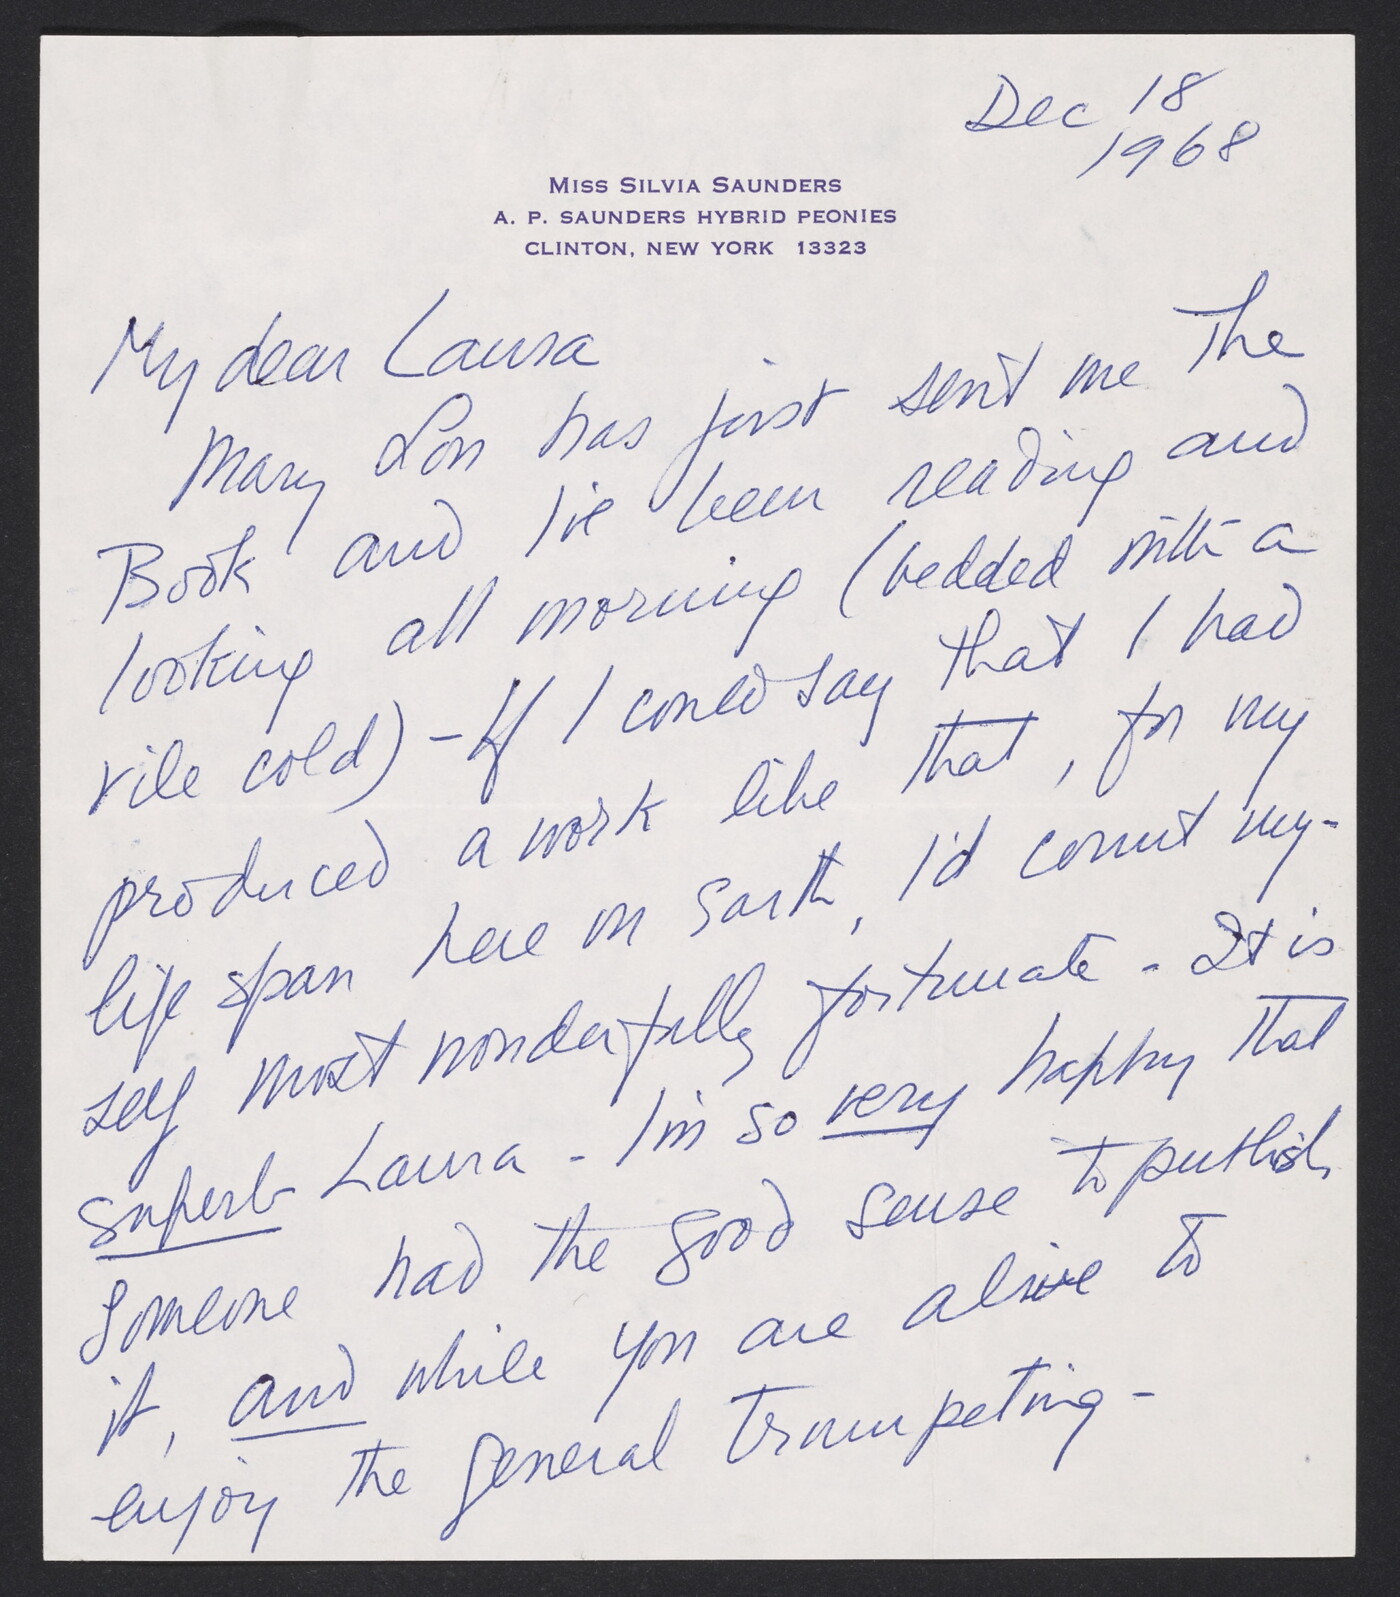 Dec 18
1968
MISS SILVIA SAUNDERS
A. P. SAUNDERS HYBRID PEONIES
CLINTON, NEW YORK 13323
My dear Laura
Mary Lou has just sent me The
Book and I've been reading and
looking all morning (bedded with a
vile cold) - If I could say that I had
produced a work like that, for my
life span here on Earth, I'd count my-
self most wonderfully fortunate - It is
superb Laura - I'm so very happy that
someone had the good sense to publish
it, and while you are alive to
enjoy the general trumpeting -